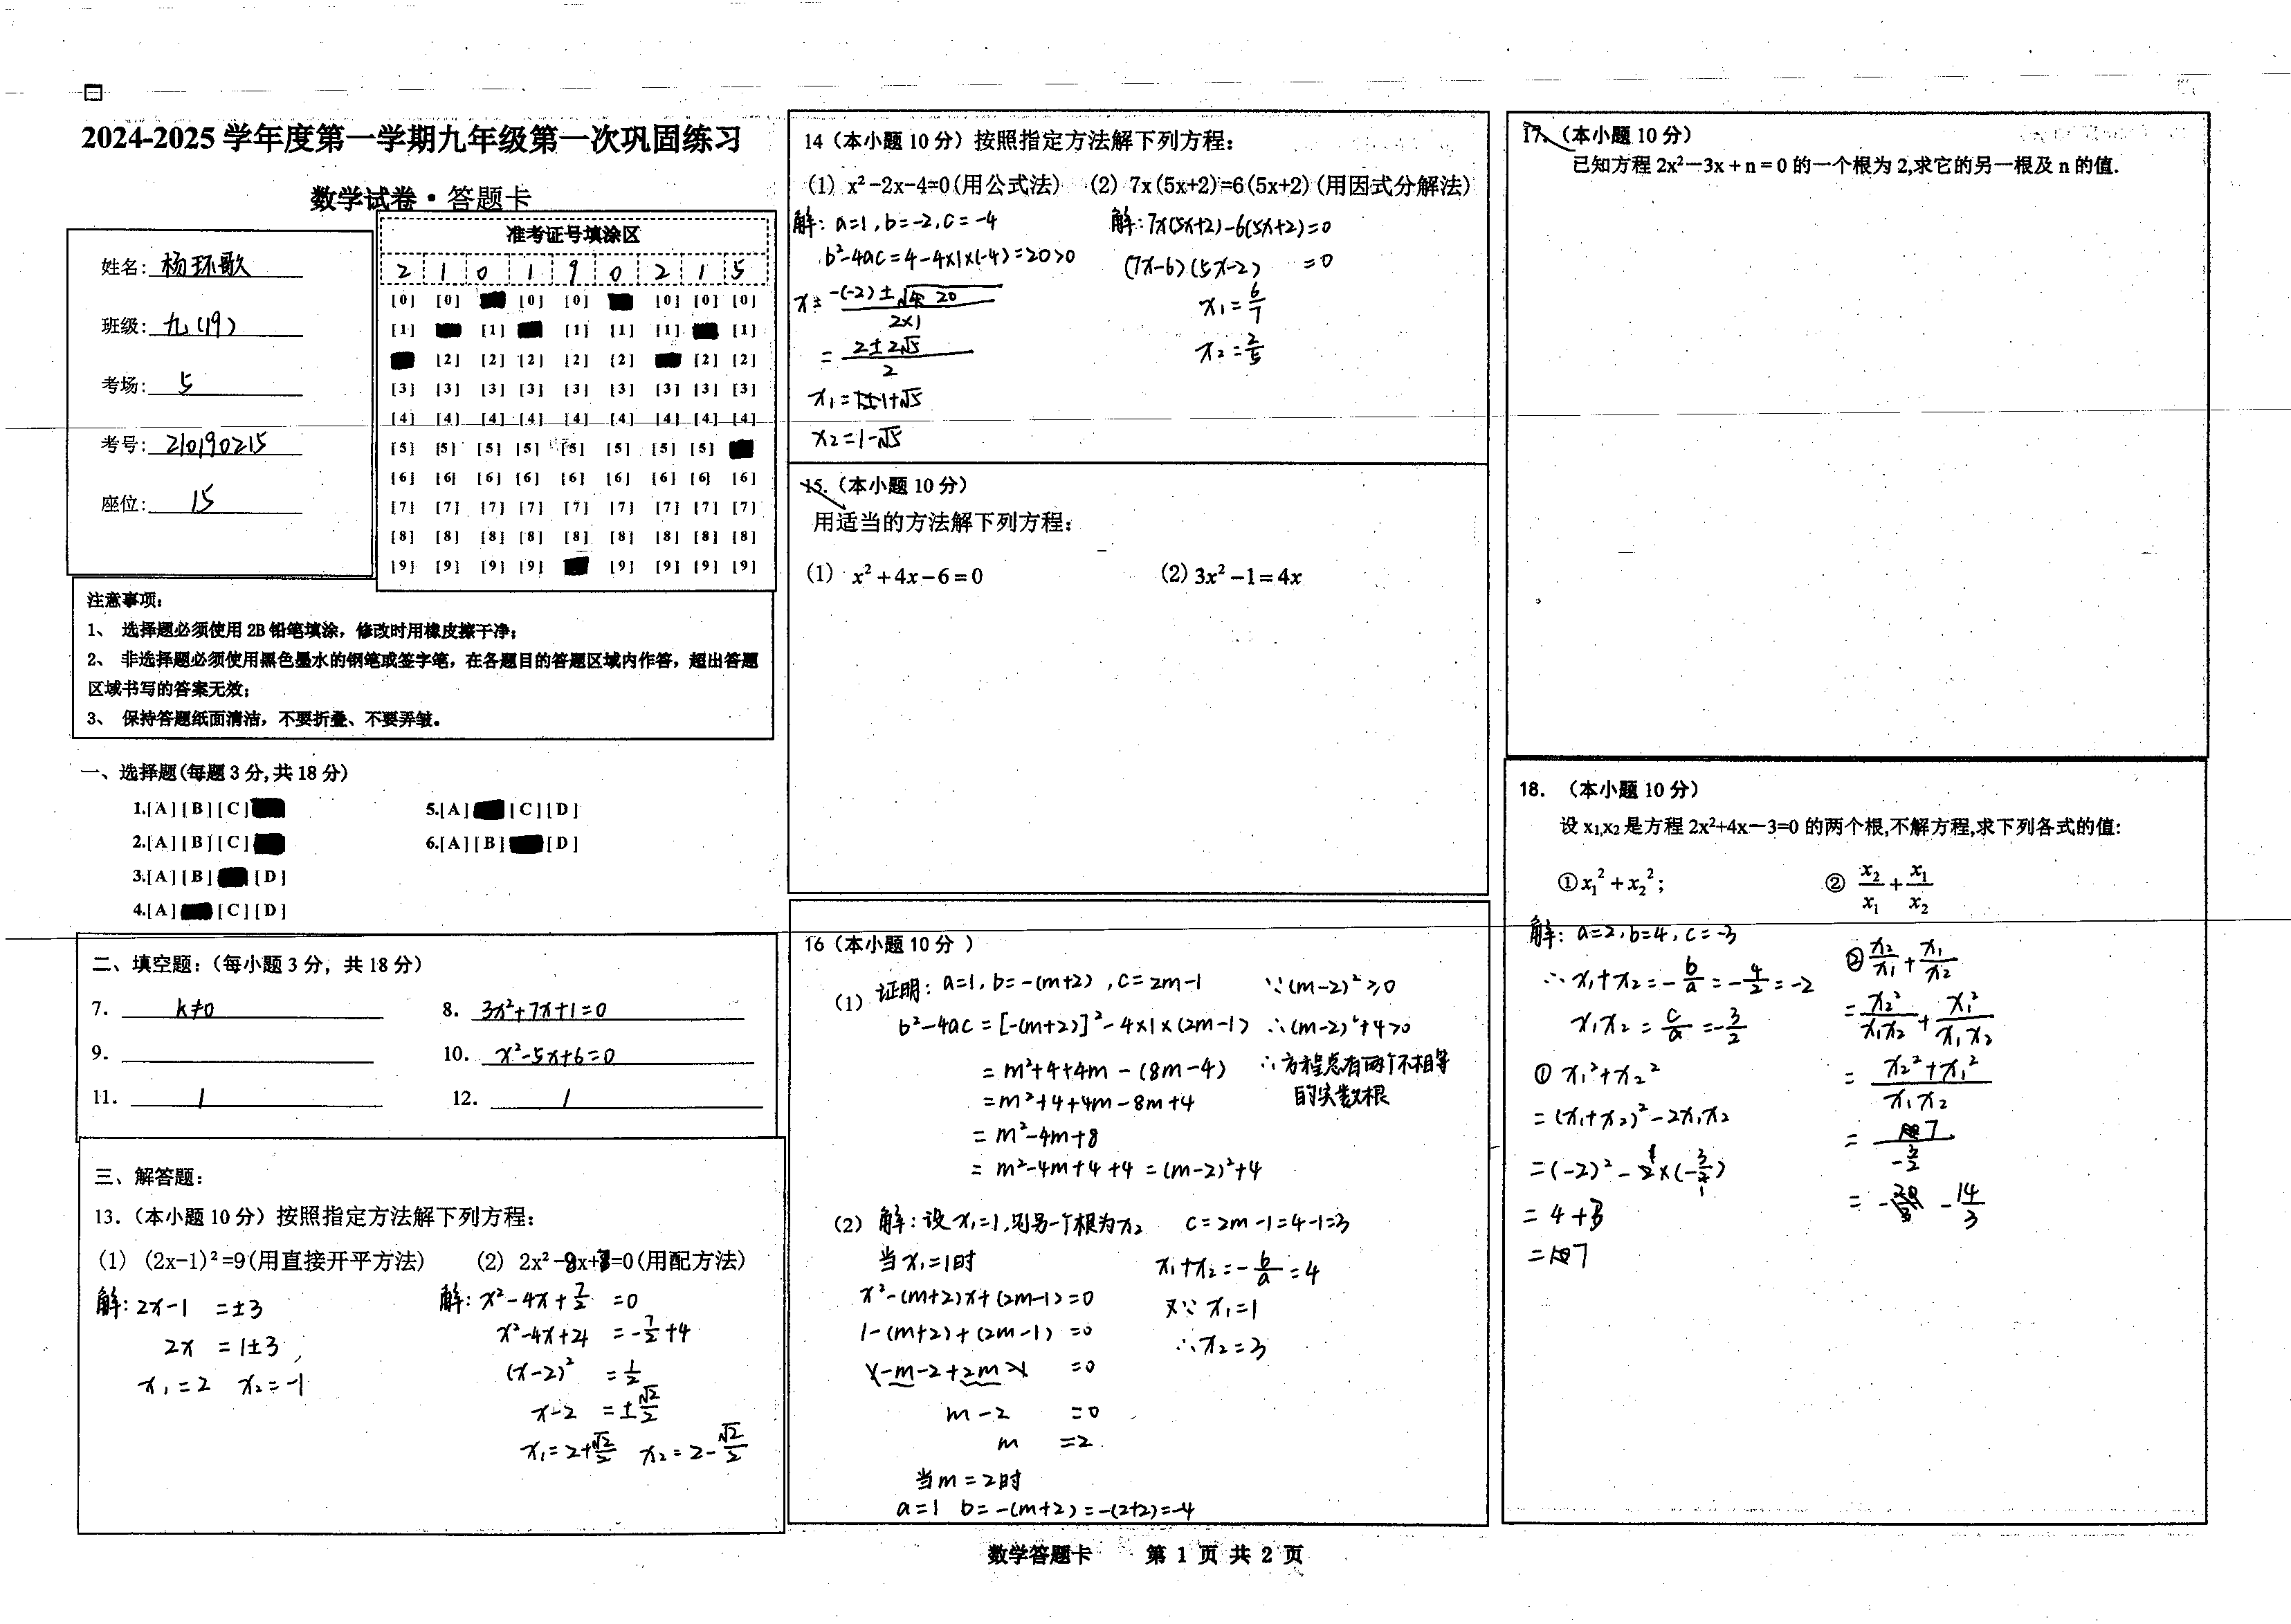 2024-2025 学年度第一学期九年级第一次巩固练习
数学试卷·答题卡
姓名: 杨环歌
班级: 九(19)
考场: 5
考号: 210190215
座位: 15
准考证号填涂区
2 1 0 1 9 0 2 1 5
[0] [0] [0] [0] [0] [0] [0]
[1] [1] [1] [1] [1] [1]
[2] [2] [2] [2] [2] [2] [2]
[3] [3] [3] [3] [3] [3] [3] [3] [3]
[4] [4] [4] [4] [4] [4] [4] [4] [4]
[5] [5] [5] [5] [5] [5] [5] [5]
[6] [6] [6] [6] [6] [6] [6] [6] [6]
[7] [7] [7] [7] [7] [7] [7] [7] [7]
[8] [8] [8] [8] [8] [8] [8] [8] [8]
[9] [9] [9] [9] [9] [9] [9] [9]
注意事项:
1、 选择题必须使用 2B 铅笔填涂，修改时用橡皮擦干净;
2、 非选择题必须使用黑色墨水的钢笔或签字笔，在各题目的答题区域内作答，超出答题
区域书写的答案无效;
3、 保持答题纸面清洁，不要折叠、不要弄皱。
一、选择题(每题 3 分,共 18 分)
1.[A][B][C]
5.[A] [C][D]
2.[A][B][C]
6.[A][B] [D]
3.[A][B] [D]
4.[A] [C][D]
二、填空题:（每小题 3 分，共 18 分）
7. k≠0
8. 3x²+7x+1=0
9.
10. x²-5x+6=0
11. 1
12. 1
三、解答题:
13.（本小题 10 分）按照指定方法解下列方程:
(1) (2x-1)²=9(用直接开平方法) (2) 2x²-8x+7=0(用配方法)
解: 2x-1 =±3
2x =1±3
x₁=2 x₂=-1
解: x²-4x+7/2 =0
x²-4x+4 =-7/2+4
(x-2)² =1/2
x-2 =±√2/2
x₁=2+√2/2 x₂=2-√2/2
14（本小题 10 分）按照指定方法解下列方程:
(1) x²-2x-4=0(用公式法) (2) 7x(5x+2)=6(5x+2)(用因式分解法)
解: a=1,b=-2,c=-4
b²-4ac=4-4×1×(-4)=20>0
x=(-(-2)±√20)/(2×1)
=(2±2√5)/2
x₁=1+√5
x₂=1-√5
解: 7x(5x+2)-6(5x+2)=0
(7x-6)(5x-2) =0
x₁=6/7
x₂=2/5
15.（本小题 10 分）
用适当的方法解下列方程:
(1) x²+4x-6=0 (2) 3x²-1=4x
16（本小题 10 分 ）
(1) 证明: a=1, b=-(m+2), c=2m-1
b²-4ac=[-(m+2)]²-4×1×(2m-1)
=m²+4+4m-(8m-4)
=m²+4+4m-8m+4
=m²-4m+8
=m²-4m+4+4=(m-2)²+4
∵(m-2)²≥0
∴(m-2)²+4>0
∴方程总有两个不相等
的实数根
(2) 解: 设x₁=1,则另一个根为x₂
当x₁=1时
x²-(m+2)x+(2m-1)=0
1-(m+2)+(2m-1) =0
1-m-2+2m-1 =0
m-2 =0
m =2
当m=2时
a=1 b=-(m+2)=-(2+2)=-4
c=2m-1=4-1=3
x₁+x₂=-b/a=4
又∵x₁=1
∴x₂=3
17.（本小题 10 分）
已知方程 2x²-3x+n=0 的一个根为 2,求它的另一根及 n 的值.
18. （本小题 10 分）
设 x₁,x₂ 是方程 2x²+4x-3=0 的两个根,不解方程,求下列各式的值:
①x₁²+x₂²; ② x₂/x₁+x₁/x₂
解: a=2,b=4,c=-3
∴x₁+x₂=-b/a=-4/2=-2
x₁x₂=c/a=-3/2
① x₁²+x₂²
=(x₁+x₂)²-2x₁x₂
=(-2)²-2×(-3/2)
=4+3
=7
②x₂/x₁+x₁/x₂
=x₂²/x₁x₂+x₁²/x₁x₂
=(x₂²+x₁²)/x₁x₂
=7/(-3/2)
=-14/3
数学答题卡 第 1 页 共 2 页